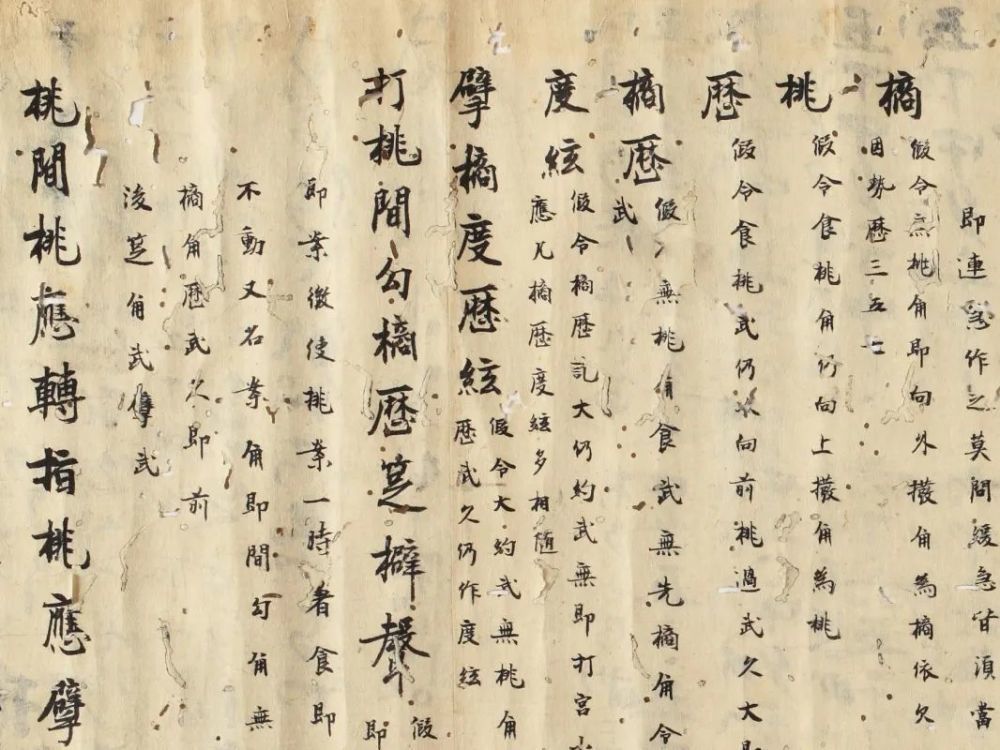 即連急作之莫問緩急皆須當
摘 假令無桃角即向外撥角為摘依欠
因勢歷三五七
桃 假令食桃角仍向上撥角為桃
歷 假令食桃武仍向前桃過武久大
摘歷 假 無桃角食武無先摘角令
武
度絃 假令摘歷訖大仍約武無即打宮
應凡摘歷度絃多相隨
擘摘度歷絃 假令大約武無桃角
歷武久仍作度絃
打桃間勾摘歷 擗聲 假
即
即 徵使桃 一時者食即
不動又名 角即間勾角無
摘角歷武久即前
角武 武
桃間桃應轉指桃應擘